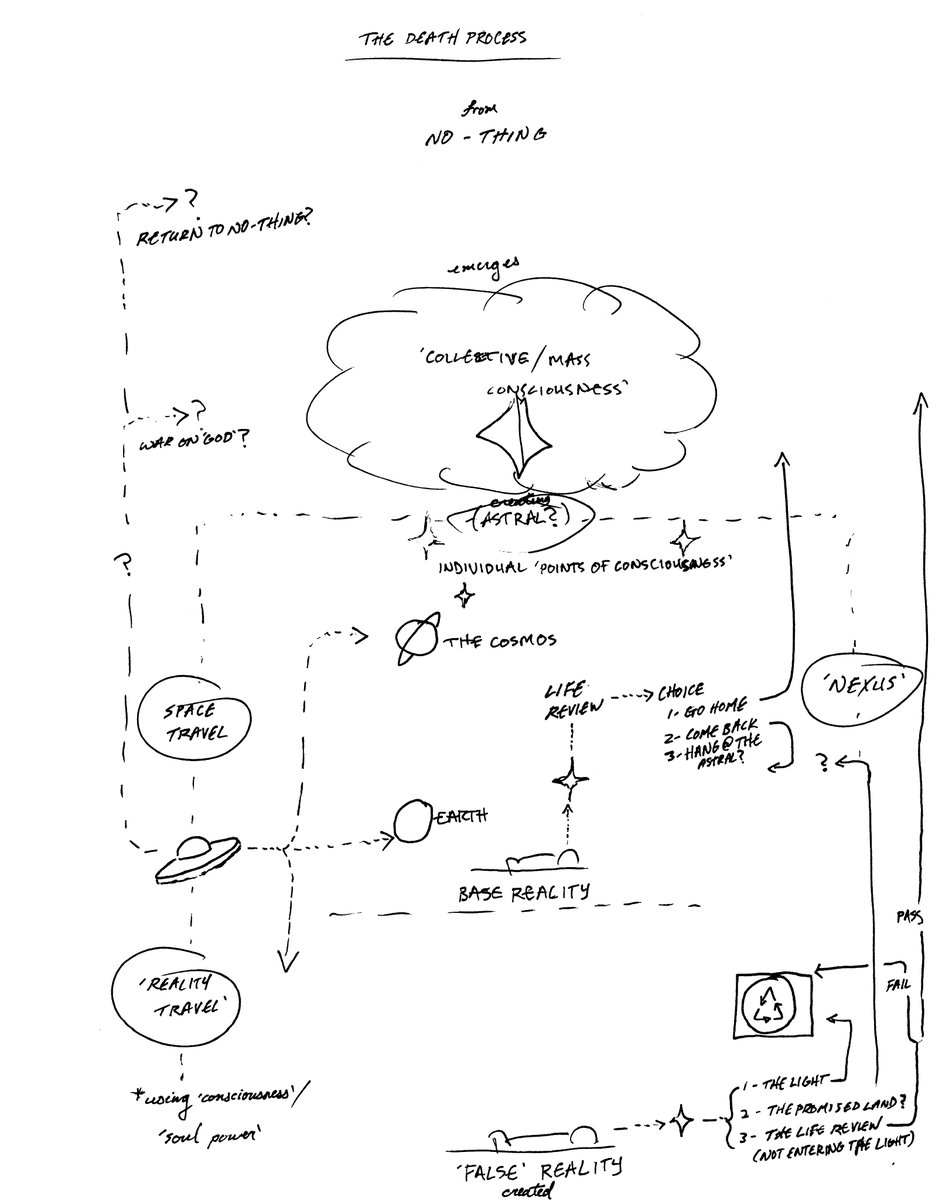 THE DEATH PROCESS
from
NO-THING
?
RETURN TO NO-THING?
emerges
'COLLECTIVE/MASS
CONSCIOUSNESS'
?
WAR ON 'GOD'?
creating
(ASTRAL?)
INDIVIDUAL 'POINTS OF CONSCIOUSNESS'
?
THE COSMOS
SPACE
TRAVEL
LIFE
REVIEW
CHOICE
1- GO HOME
2- COME BACK
3- HANG @ THE
ASTRAL?
'NEXUS'
?
EARTH
BASE REALITY
PASS
FAIL
'REALITY
TRAVEL'
*using 'consciousness'/
'soul power'
1- THE LIGHT
2- THE PROMISED LAND?
3- THE LIFE REVIEW
(NOT ENTERING THE LIGHT)
'FALSE' REALITY
created